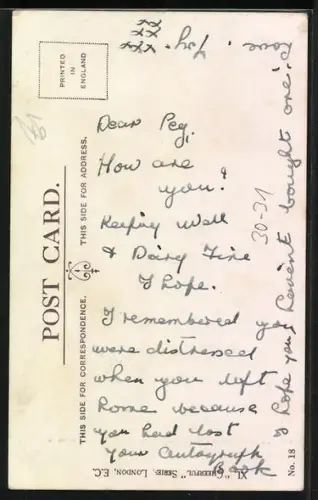 PRINTED
IN
ENGLAND
POST CARD.
THIS SIDE FOR CORRESPONDENCE.
THIS SIDE FOR ADDRESS.
Dear Peg,
How are
you?
Keeping well
& Doing Fine
I hope.
I remembered you
were distressed
when you left
home because
you had lost
your Autograph
Book
I hope you havent bought one.
Love
xx
xx
xxx
30-31
XL "CHEERFUL" SERIE, LONDON, E.C.
No. 18